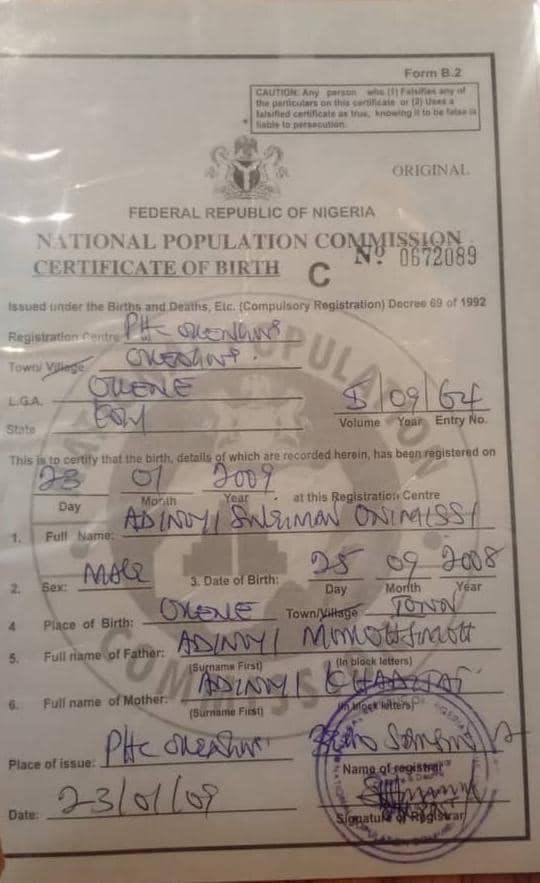 Form B.2
CAUTION: Any person who (1) Falsifies any of
the particulars on this certificate or (2) Uses a
falsified certificate as true, knowing it to be false is
liable to persecution.
ORIGINAL
FEDERAL REPUBLIC OF NIGERIA
NATIONAL POPULATION COMMISSION
CERTIFICATE OF BIRTH C Nº 0672089
Issued under the Births and Deaths, Etc. (Compulsory Registration) Decree 69 of 1992
Registration Centre PHC
Town/Village
L.G.A. OKENE
State
/09/64
Volume Year Entry No.
This is to certify that the birth, details of which are recorded herein, has been registered on
23 01 2009
Day Month Year at this Registration Centre
1. Full Name: ADINOYI ONIMISI
2. Sex: Male 3. Date of Birth: 25 09 2008
Day Month Year
4 Place of Birth: OKENE Town/Village TOWN
5. Full name of Father: ADINOYI
(Surname First) (In block letters)
6. Full name of Mother: ADINOYI
(Surname First) (In block letters)
Place of issue: PHC
Name of registrar
Date: 23/01/09
Signature of Registrar